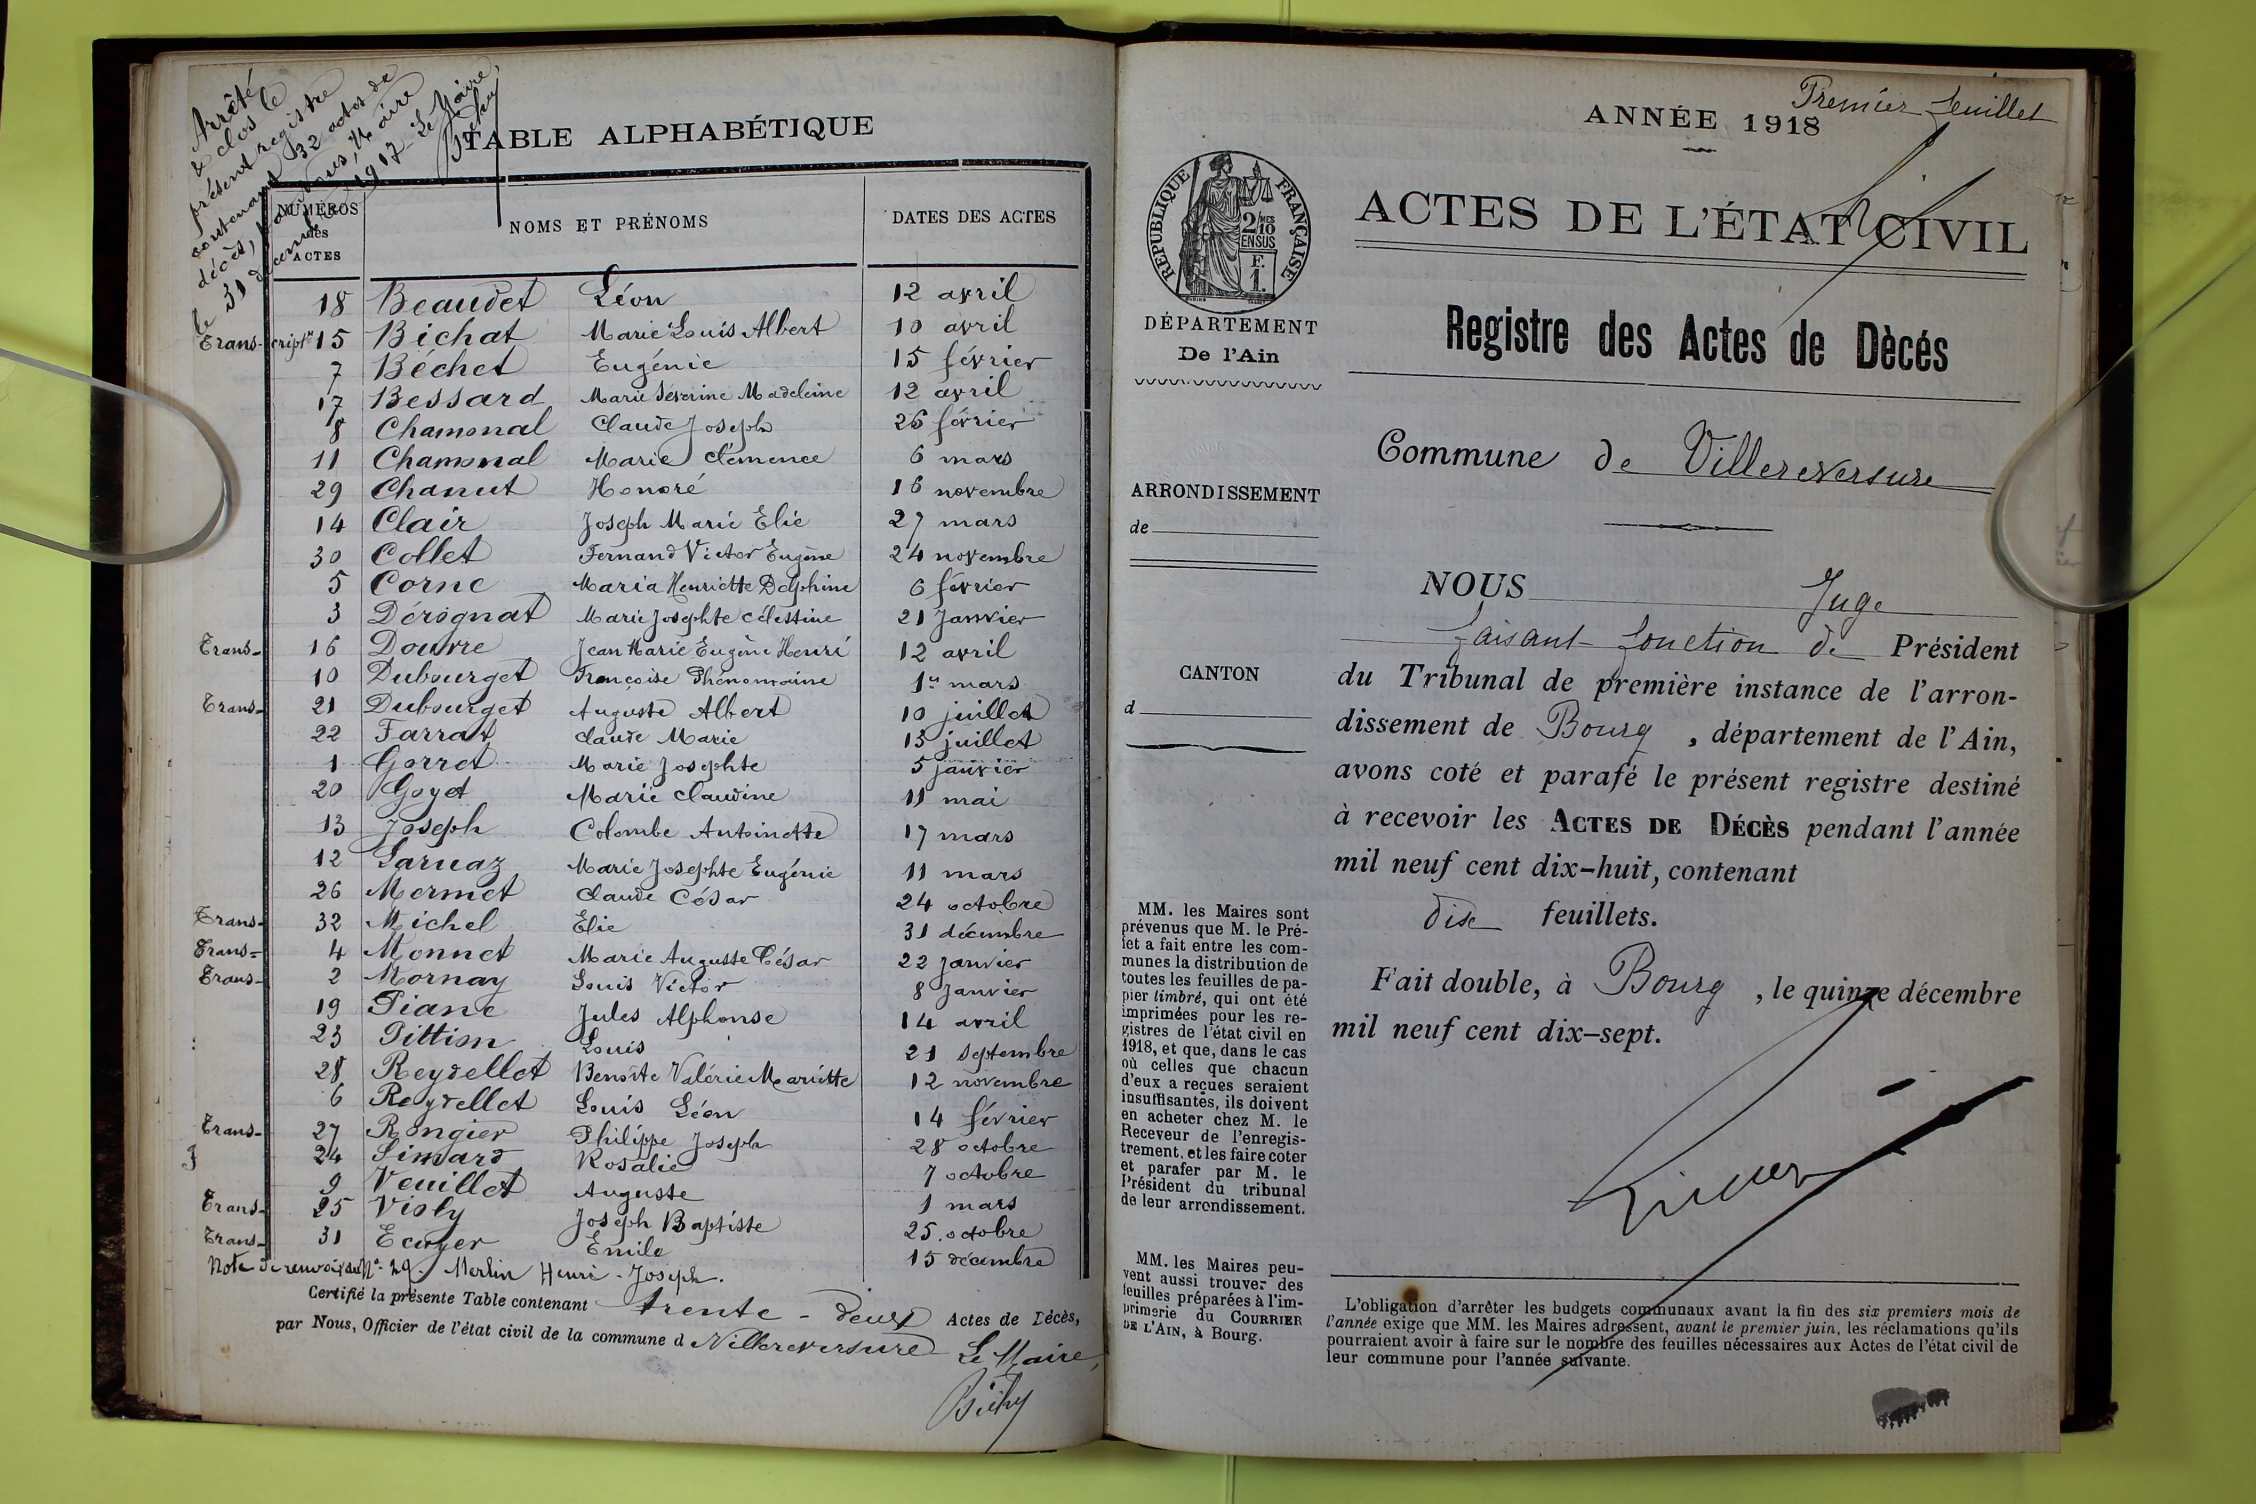 Arrêté
& clos le
présent registre
contenant 32 actes de
décès, par nous, Maire
le 31 décembre 1917. Le Maire,
Bichy
TABLE ALPHABÉTIQUE
NUMÉROS des ACTES NOMS ET PRÉNOMS DATES DES ACTES
18 Beaudet Léon 12 avril
Trans-cript.n 15 Bichat Marie Louis Albert 10 avril
7 Béchet Eugénie 15 février
17 Bessard Marie Séverine Madeleine 12 avril
8 Chamonal Claude Joseph 26 février
11 Chamonal Marie Clémence 6 mars
29 Chanut Honoré 16 novembre
14 Clair Joseph Marie Elie 27 mars
30 Collet Fernand Victor Eugène 24 novembre
5 Corne Maria Henriette Delphine 6 février
3 Dérognat Marie Josephte Célestine 21 Janvier
Trans- 16 Douvre Jean Marie Eugène Henri 12 avril
10 Dubourget Françoise Phénomaine 1er mars
Trans- 21 Dubourget Auguste Albert 10 juillet
22 Farrat Claude Marie 13 juillet
1 Gorret Marie Josephte 5 janvier
20 Goyet Marie Claudine 11 mai
13 Joseph Colombe Antoinette 17 mars
12 Laruaz Marie Josephte Eugénie 11 mars
26 Mermet Claude César 24 octobre
Trans- 32 Michel Elie 31 décembre
Trans- 4 Monnet Marie Auguste César 22 Janvier
Trans- 2 Mornay Louis Victor 8 Janvier
19 Piane Jules Alphonse 14 avril
23 Pittion Louis 21 septembre
28 Reydellet Benoîte Valérie Mariette 12 novembre
6 Reydellet Louis Léon 14 février
Trans- 27 Rongier Philippe Joseph 28 octobre
24 Simard Rosalie 7 octobre
9 Veuillet Auguste 1 mars
Trans- 25 Violy Joseph Baptiste 25 octobre
Trans- 31 Ecuyer Emile 15 décembre
Note de renvoi au N° 29. Merlin Henri-Joseph.
Certifié la présente Table contenant trente-deux Actes de Décès,
par Nous, Officier de l'état civil de la commune d Villereversure
Le Maire,
Bichy
Premier feuillet
ANNÉE 1918
RÉPUBLIQUE FRANÇAISE
2/10 MES
EN SUS
F.
1.
ACTES DE L'ÉTAT CIVIL
DÉPARTEMENT
De l'Ain
Registre des Actes de Dècés
Commune de Villereversure
ARRONDISSEMENT
de
CANTON
d
NOUS Juge
faisant fonction de Président
du Tribunal de première instance de l'arron-
dissement de Bourg, département de l'Ain,
avons coté et parafé le présent registre destiné
à recevoir les ACTES DE DÉCÈS pendant l'année
mil neuf cent dix-huit, contenant
dix feuillets.
Fait double, à Bourg, le quinze décembre
mil neuf cent dix-sept.
MM. les Maires sont
prévenus que M. le Pré-
fet a fait entre les com-
munes la distribution de
toutes les feuilles de pa-
pier timbré, qui ont été
imprimées pour les re-
gistres de l'état civil en
1918, et que, dans le cas
où celles que chacun
d'eux a reçues seraient
insuffisantes, ils doivent
en acheter chez M. le
Receveur de l'enregis-
trement, et les faire coter
et parafer par M. le
Président du tribunal
de leur arrondissement.
MM. les Maires peu-
vent aussi trouver des
feuilles préparées à l'im-
primerie du COURRIER
DE L'AIN, à Bourg.
L'obligation d'arrêter les budgets communaux avant la fin des six premiers mois de
l'année exige que MM. les Maires adressent, avant le premier juin, les réclamations qu'ils
pourraient avoir à faire sur le nombre des feuilles nécessaires aux Actes de l'état civil de
leur commune pour l'année suivante.